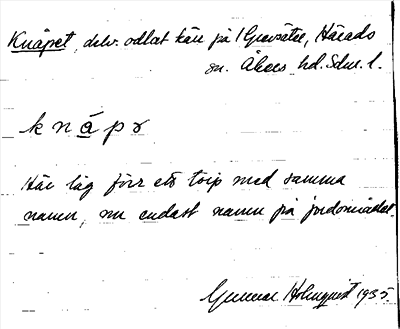 Knäpet, delv. odlat kärr på 1 Grevsäter, Härads
sn. Åkers hd. Sdm. l.
k n ä p ɘ
Här låg förr ett torp med samma
namn, nu endast namn på jordområdet.
Gunnar Holmquist 1935.